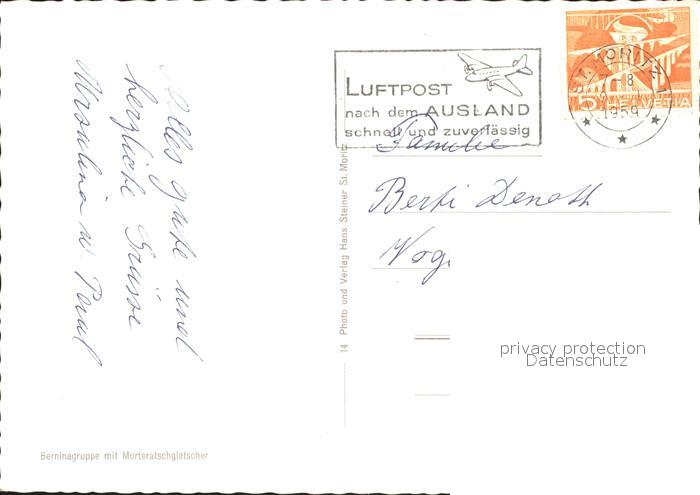 Alles gute und
herzliche Grüsse
Ursulina u. Paul
Berninagruppe mit Morteratschgletscher
14 Photo und Verlag Hans Steiner St. Moritz
LUFTPOST
nach dem AUSLAND
schnell und zuverlässig
ST. MORITZ 1
8
1959
5 HELVETIA
Familie
Berti Denoth
privacy protection
Datenschutz